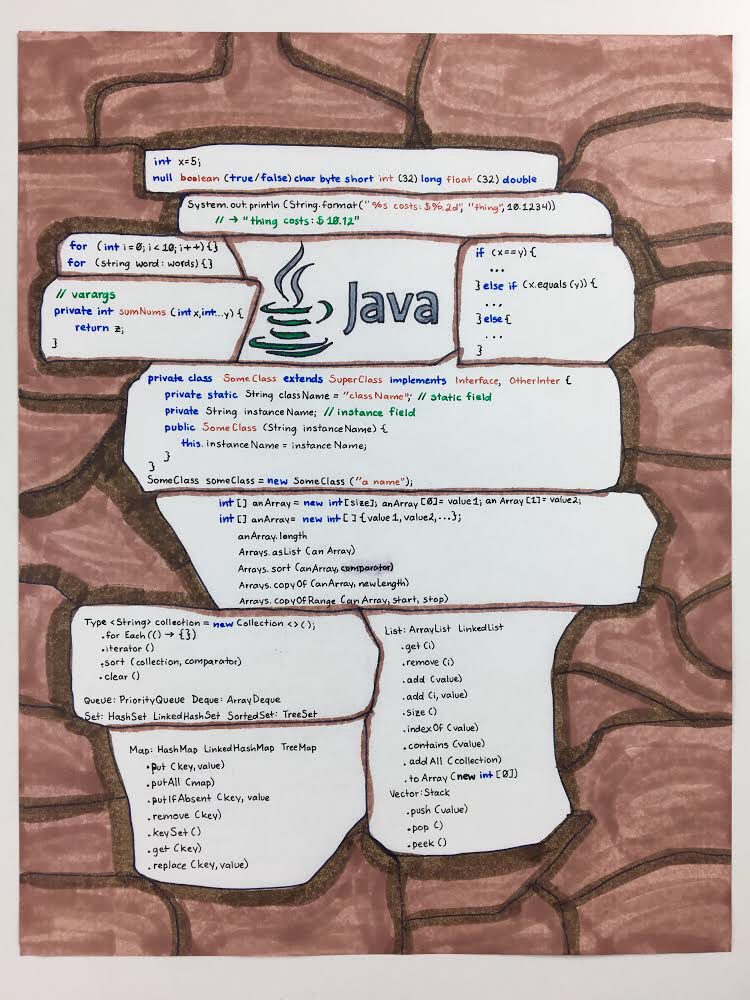 int x=5;
null boolean (true/false) char byte short int (32) long float (32) double
System.out.println (String.format("%s costs: $%.2d", "thing", 10.1234))
// → "thing costs: $10.12"
for (int i=0; i<10; i++){}
for (string word: words){}
// varargs
private int sumNums (int x,int...y) {
return z;
}
Java
if (x==y) {
...
} else if (x.equals(y)) {
...
} else {
...
}
private class SomeClass extends SuperClass implements Interface, OtherInter {
private static String className = "className"; // static field
private String instanceName; // instance field
public SomeClass (String instanceName) {
this.instanceName = instanceName;
}
}
SomeClass someClass = new SomeClass ("a name");
int [] anArray = new int [size]; anArray [0] = value1; an Array [1] = value2;
int [] anArray = new int [] {value1, value2,...};
anArray.length
Arrays.asList (an Array)
Arrays.sort (anArray, comparator)
Arrays.copyOf (anArray, newLength)
Arrays.copyOfRange (an Array, start, stop)
Type <String> collection = new Collection <> ();
.for Each(() → {})
.iterator ()
.sort (collection, comparator)
.clear ()
Queue: PriorityQueue Deque: ArrayDeque
Set: HashSet LinkedHashSet SortedSet: TreeSet
Map: HashMap LinkedHashMap TreeMap
.put (key, value)
.putAll (map)
.putIfAbsent (key, value
.remove (key)
.keySet ()
.get (key)
.replace (key, value)
List: ArrayList LinkedList
.get (i)
.remove (i)
.add (value)
.add (i, value)
.size ()
.indexOf (value)
.contains (value)
.addAll (collection)
.to Array (new int [0])
Vector: Stack
.push (value)
.pop ()
.peek ()